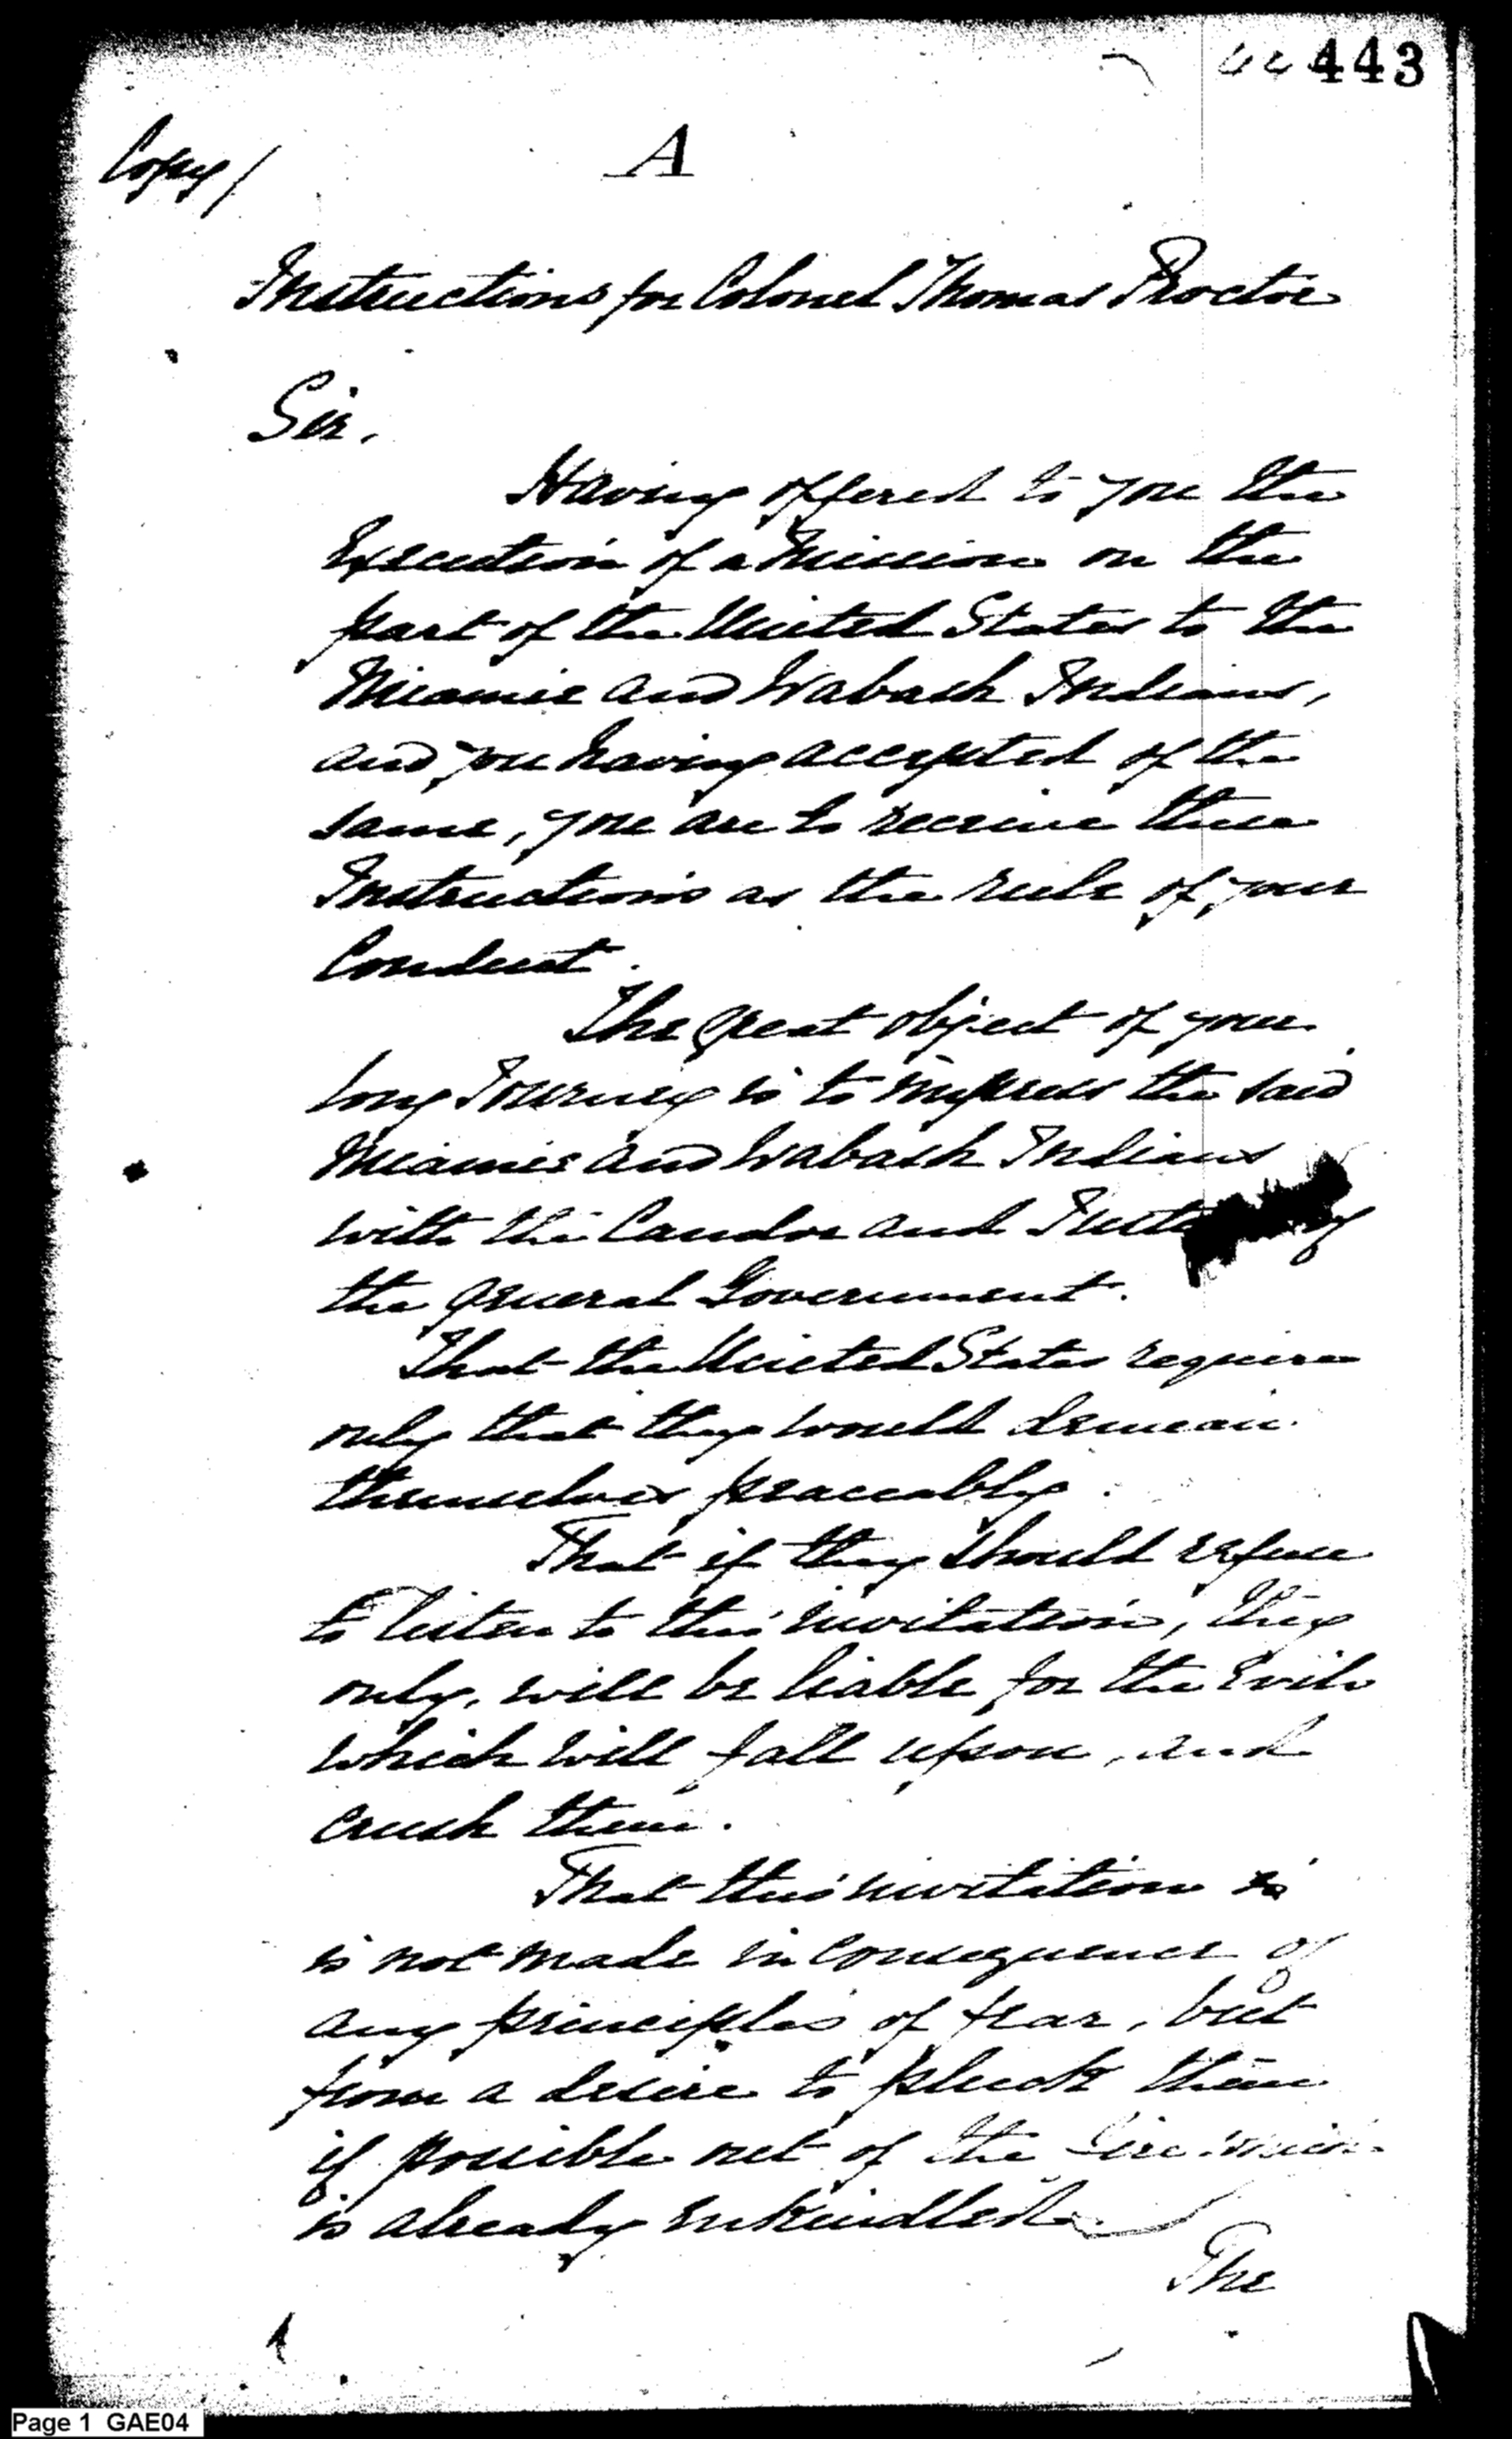 443
Copy/
A
Instructions for Colonel Thomas Proctor
Sir,
Having offered to you the
Execution of a Mission on the
part of the United States to the
Miamis and Wabash Indians,
and you having accepted of the
same, you are to receive these
Instructions as the rule of your
Conduct.
The great object of your
long Journey is to impress the said
Miamis and Wabash Indians
with the Candor and of
the general Government.
That the United States require
only that they would demean
themselves peaceably.
That if they should refuse
to listen to this invitation, they
only, will be liable for the Evils
which will fall upon, and
crush them.
That this invitation is
is not made in Consequence of
any principles of fear, but
from a desire to pluck them
if possible out of the fire which
is already enkindled.
The
Page 1 GAE04